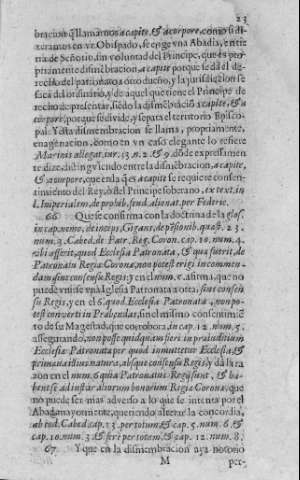 23
bracion q̃ llamamos a capite, & a corpore, como si di-
xeramos en vn Obispado, se erige vna Abadia, en tie
rra de Señorio, sin voluntad del Principe, que es pro
priamente dismẽbracion a capite porque se dà el de-
recho del patronato a otro dueño, y la jurisdicion se
saca del ordinario, y de aquel que tiene el Principe de
recho de presentar, siẽdo la dismẽbraciõ a capite, & a
corpore, porque se divide, y separa el territorio Episco-
pal: Y esta dismembracion se llama, propriamente,
enagenacion, como en vn caso elegante lo refiere
Martinis allegat. iur. 13. n. 2. & 9. dõde expressamen
te dize, distinguiendo entre la dismẽbracion, a capite,
& a corpore, que en la q̃ es a capite se requiere consen-
timiento del Rey, ò del Principe soberano, ex text. in
l. Imperialem, de prohib. feud. alienat. per Federic.
66 Que se confirma con la doctrina de la glos.
in cap. nemo, deinceps, Gigant. de pẽsionib. quæst. 23.
num. 3. Cabed. de Patr. Reg. Coron. cap. 10. num. 4.
vbi asserit, quod Ecclesia Patronata, & quæ fuerit, de
Patronatu Regiæ Coronæ, non potest erigi in commen-
dam sine consensu Regis; y en el num. 5. afirma, que no
puede vnirse vna Iglesia Patronata a otra, sine consen-
su Regis, y en el 6. quod Ecclesia Patronata, non po-
test converti in Præbendas, sin el mismo consentimiẽ-
to de su Magestad, que corrobora, in cap. 12. num. 5.
assegurando, non posse quidquam fieri in præiuditium
Ecclesiæ Patronatæ per quod immuttetur Ecclesia, &
primævi tibus natura, absque consensu Regis; y dà la ra
zon en el num. 6. quia Patronatus Regij sunt, & ha-
bentur ad instar aliorum bonorum Regiæ Coronæ, que
no puede ser mas adverso a lo que se intenta por el
Abad mayormente, queriendo alterar la concordia,
ab eod. Cabed. cap. 13. per totum, & cap. 5. num. 6. &
cap. 10. num. 3. & feri per totem, & cap. 12. num. 8.
67 Y que en la dismembracion aya notorio
M per-